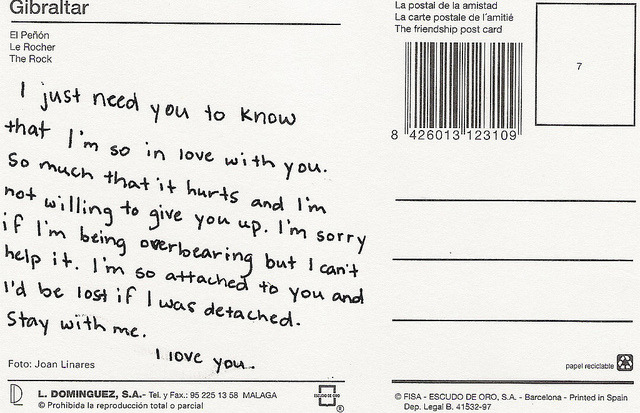 Gibraltar
El Peñón
Le Rocher
The Rock
I just need you to know
that I'm so in love with you.
So much that it hurts and I'm
not willing to give you up. I'm sorry
if I'm being overbearing but I can't
help it. I'm so attached to you and
I'd be lost if I was detached.
Stay with me.
I love you.
Foto: Joan Linares
L. DOMINGUEZ, S.A.- Tel. y Fax.: 95 225 13 58 MALAGA
© Prohibida la reproducción total o parcial
ESCUDO DE ORO
®
La postal de la amistad
La carte postale de l'amitié
The friendship post card
8 426013 123109
7
papel reciclable
© FISA - ESCUDO DE ORO, S.A. - Barcelona - Printed in Spain
Dep. Legal B. 41532-97